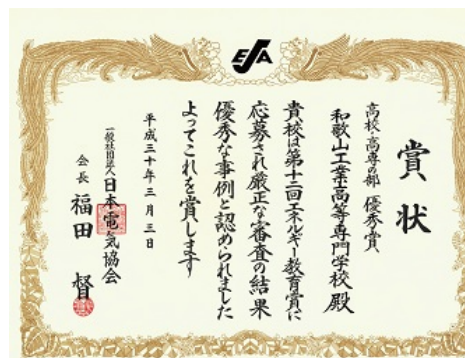 EJA
賞状
高校・高専の部 優秀賞
和歌山工業高等専門学校 殿
貴校は第十二回エネルギー教育賞に
応募され厳正な審査の結果
優秀な事例と認められました
よってこれを賞します
平成三十年三月三日
一般社団法人 日本電気協会
会長 福田 督